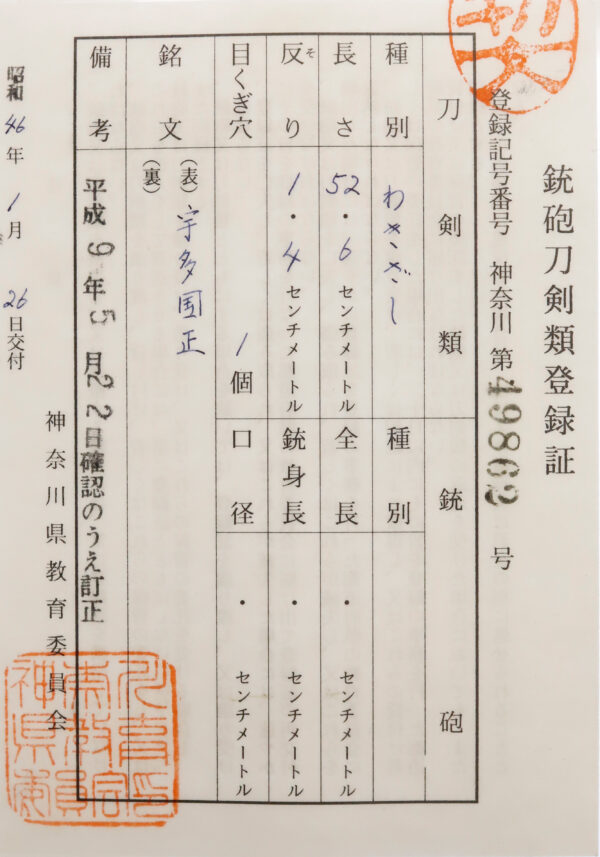 銃砲刀剣類登録証
登録記号番号 神奈川 第49862号
刀剣類 銃砲
種別 わきざし 種別
長さ 52・6センチメートル 全長 ・ センチメートル
反り 1・4センチメートル 銃身長 ・ センチメートル
そ
目くぎ穴 1個 口径 ・ センチメートル
銘文 (表) 宇多国正
(裏)
備考 平成9年5月22日確認のうえ訂正
昭和46年1月26日交付
神奈川県教育委員会